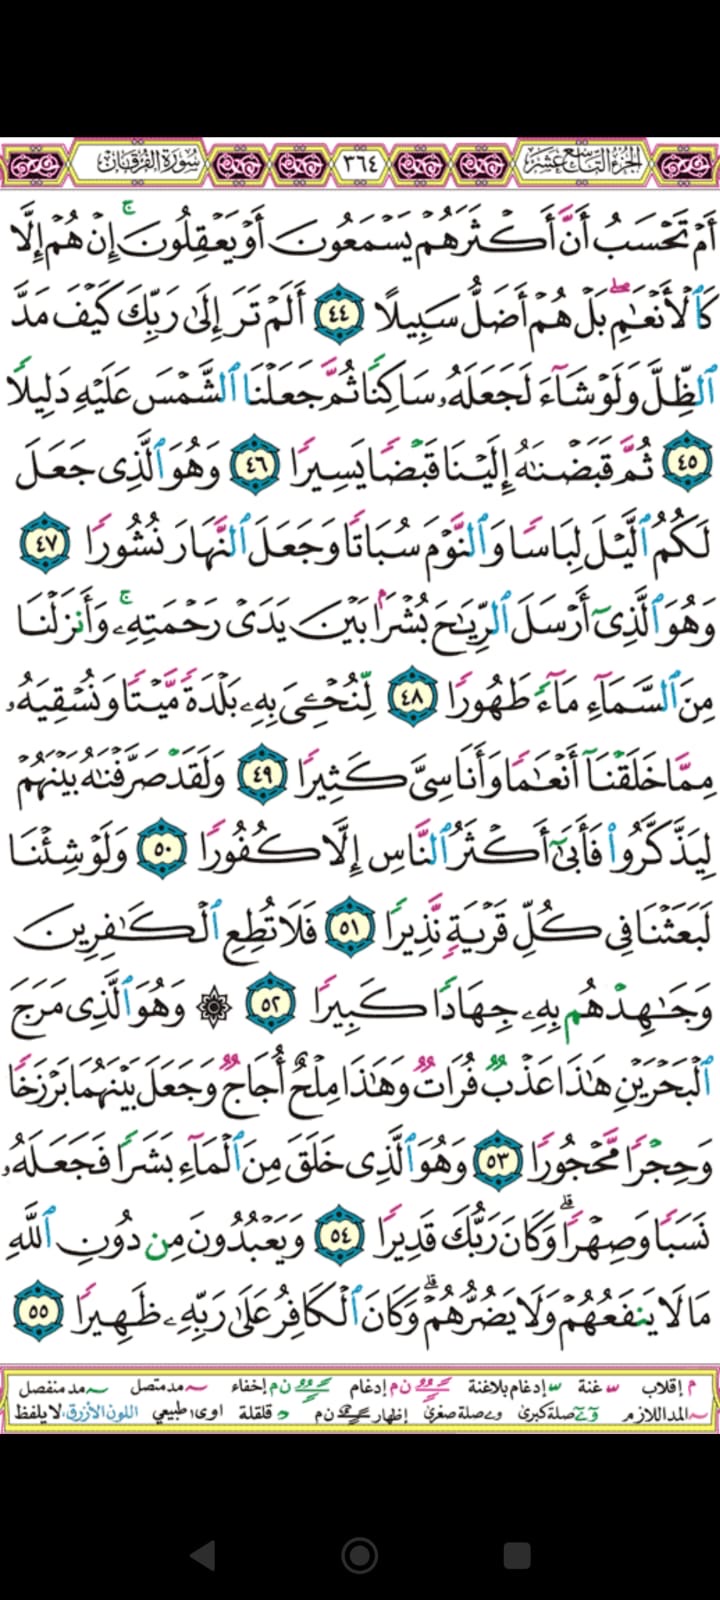 الجزء التاسع عشر ٣٦٤ سورة الفرقان
أَمْ تَحْسَبُ أَنَّ أَكْثَرَهُمْ يَسْمَعُونَ أَوْ يَعْقِلُونَ ۚ إِنْ هُمْ إِلَّا
كَٱلْأَنْعَٰمِ ۖ بَلْ هُمْ أَضَلُّ سَبِيلًا ٤٤ أَلَمْ تَرَ إِلَىٰ رَبِّكَ كَيْفَ مَدَّ
ٱلظِّلَّ وَلَوْ شَآءَ لَجَعَلَهُۥ سَاكِنًا ثُمَّ جَعَلْنَا ٱلشَّمْسَ عَلَيْهِ دَلِيلًا
٤٥ ثُمَّ قَبَضْنَٰهُ إِلَيْنَا قَبْضًا يَسِيرًا ٤٦ وَهُوَ ٱلَّذِى جَعَلَ
لَكُمُ ٱلَّيْلَ لِبَاسًا وَٱلنَّوْمَ سُبَاتًا وَجَعَلَ ٱلنَّهَارَ نُشُورًا ٤٧
وَهُوَ ٱلَّذِىٓ أَرْسَلَ ٱلرِّيَٰحَ بُشْرًۢا بَيْنَ يَدَىْ رَحْمَتِهِۦ ۚ وَأَنزَلْنَا
مِنَ ٱلسَّمَآءِ مَآءً طَهُورًا ٤٨ لِّنُحْۦِىَ بِهِۦ بَلْدَةً مَّيْتًا وَنُسْقِيَهُۥ
مِمَّا خَلَقْنَآ أَنْعَٰمًا وَأَنَاسِىَّ كَثِيرًا ٤٩ وَلَقَدْ صَرَّفْنَٰهُ بَيْنَهُمْ
لِيَذَّكَّرُوا۟ فَأَبَىٰٓ أَكْثَرُ ٱلنَّاسِ إِلَّا كُفُورًا ٥٠ وَلَوْ شِئْنَا
لَبَعَثْنَا فِى كُلِّ قَرْيَةٍ نَّذِيرًا ٥١ فَلَا تُطِعِ ٱلْكَٰفِرِينَ
وَجَٰهِدْهُم بِهِۦ جِهَادًا كَبِيرًا ٥٢ ۞ وَهُوَ ٱلَّذِى مَرَجَ
ٱلْبَحْرَيْنِ هَٰذَا عَذْبٌ فُرَاتٌ وَهَٰذَا مِلْحٌ أُجَاجٌ وَجَعَلَ بَيْنَهُمَا بَرْزَخًا
وَحِجْرًا مَّحْجُورًا ٥٣ وَهُوَ ٱلَّذِى خَلَقَ مِنَ ٱلْمَآءِ بَشَرًا فَجَعَلَهُۥ
نَسَبًا وَصِهْرًا ۗ وَكَانَ رَبُّكَ قَدِيرًا ٥٤ وَيَعْبُدُونَ مِن دُونِ ٱللَّهِ
مَا لَا يَنفَعُهُمْ وَلَا يَضُرُّهُمْ ۗ وَكَانَ ٱلْكَافِرُ عَلَىٰ رَبِّهِۦ ظَهِيرًا ٥٥
م إقلاب غنة إدغام بلاغنة ن م إدغام ن م إخفاء مد متصل مد منفصل
المد اللازم صلة كبرى صلة صغرى إظهار ن م قلقلة اوى طبيعي اللون الأزرق: لا يلفظ